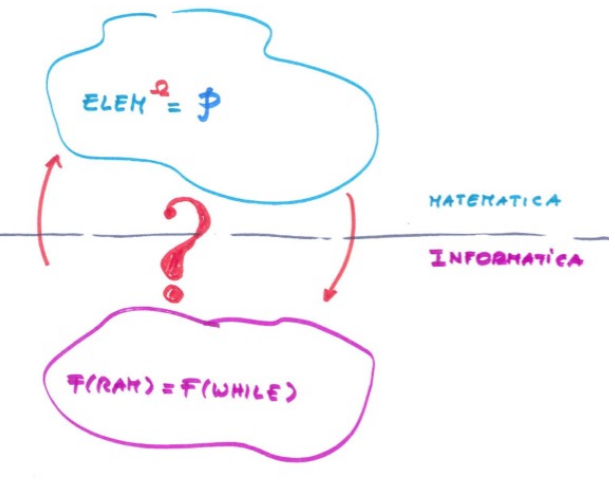 ELEM^Ω = 𝒫
?
MATEMATICA
INFORMATICA
F(RAM) = F(WHILE)